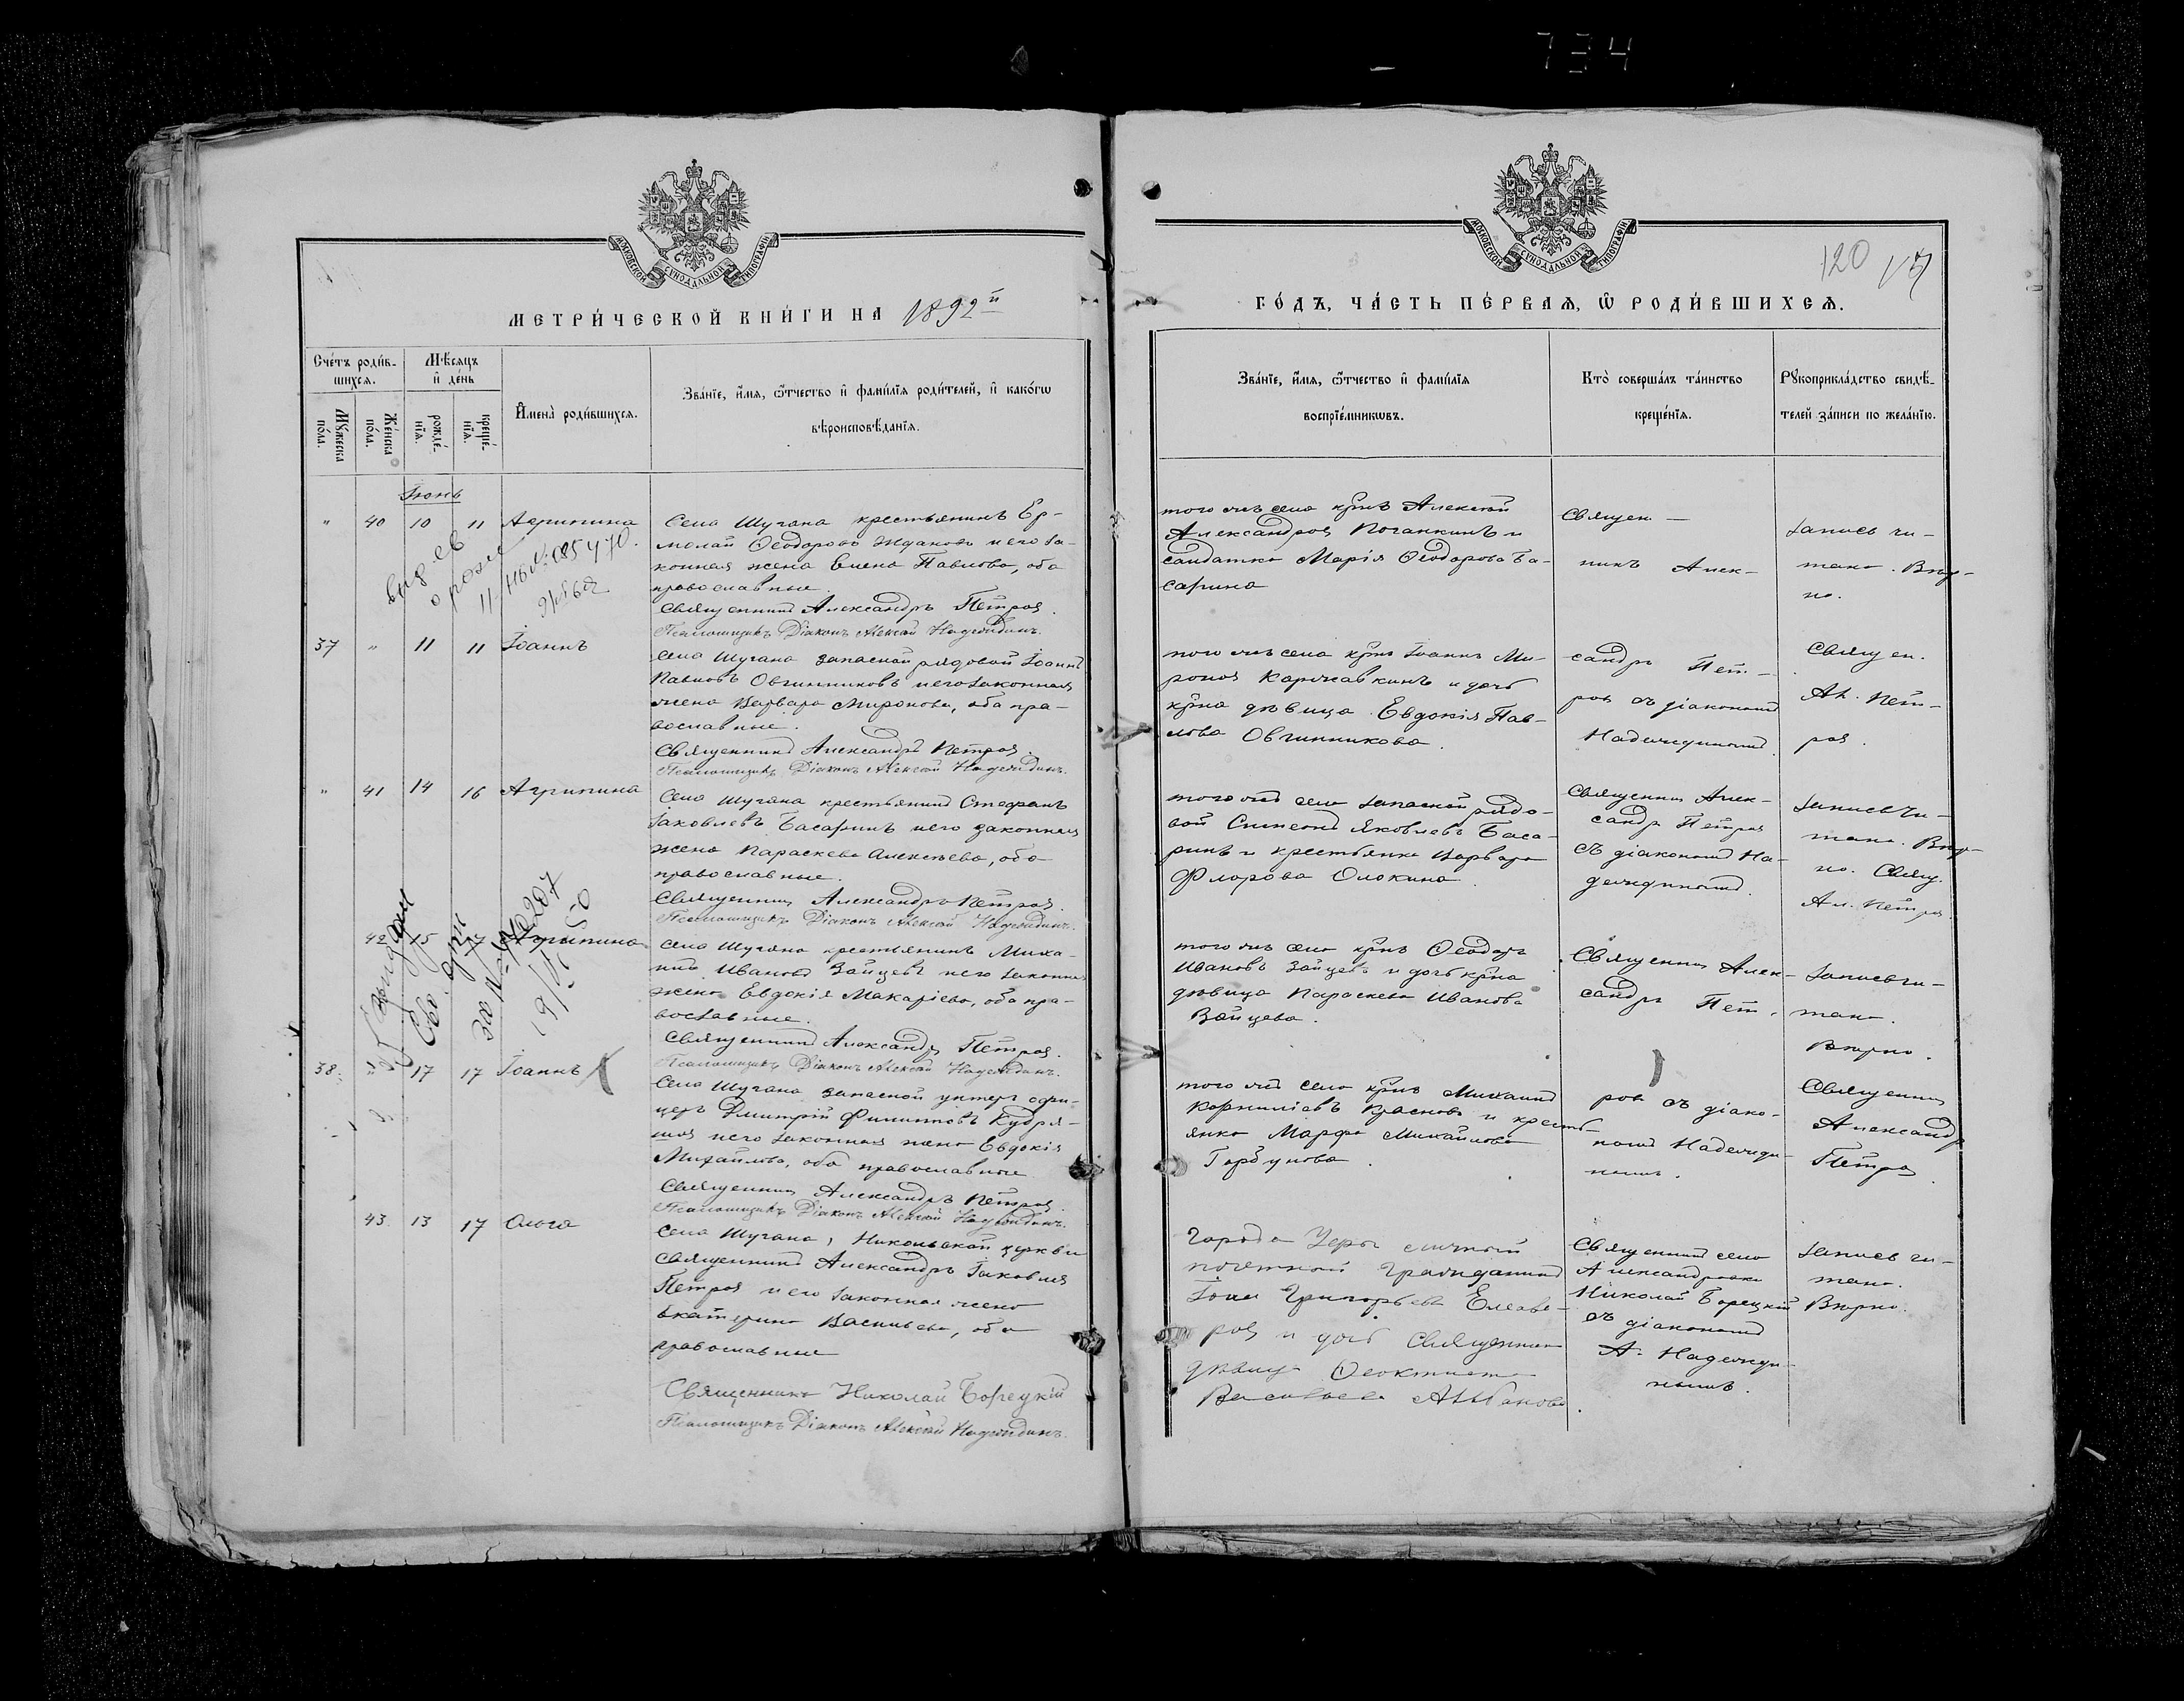 734
120
МОСКОВСКОЙ СѴНОДАЛЬНОЙ ТИПОГРАФІИ
МОСКОВСКОЙ СѴНОДАЛЬНОЙ ТИПОГРАФІИ
МЕТРИ́ЧЕСКОЙ КНИ́ГИ НА 1892й
ГО́ДЪ, ЧА́СТЬ ПЕ́РВАЯ, Ѽ РОДИ́ВШИХСЯ.
Сче́тъ роди́в-
шихся.
Мꙋ́жеска по́ла.
Же́нска по́ла.
Мѣ́сяцъ и҆ де́нь
рожде́-нїя.
креще́-нїя.
И҆мена̀ роди́вшихся.
Зва́нїе, и҆́мя, ѻ҆́тчество и҆ фами́лїя роди́телей, и҆ како́гѡ
вѣроисповѣ́данїя.
Зва́нїе, и҆́мя, ѻ҆́тчество и҆ фами́лїя
воспрїе́мникѡвъ.
Кто̀ соверша́лъ та́инство
креще́нїя.
Рꙋкоприкла́дство свидѣ́-
телей за́писи по жела́нїю.
Іюнь
" 40 10 11 Агрипина
Села Шугана крестьянинъ Ер-
молай Ѳеодоровъ Ждановъ и его за-
конная жена Елена Павлова, оба
православные.
Священникъ Александръ Петровъ.
Псаломщикъ Діаконъ Алексѣй Надеждинъ.
того же села кр-нъ Алексѣй
Александровъ Поганкинъ и
солдатка Марія Ѳеодорова Ба-
сарина
Священ-
никъ Алек-
Запись чи-
тана. Вѣр-
но.
37 " 11 11 Іоаннъ
Села Шугана запасной рядовой Іоаннъ
Павловъ Овчинниковъ и его законная
жена Варвара Миронова, оба пра-
вославные.
Священникъ Александръ Петровъ.
Псаломщикъ Діаконъ Алексѣй Надеждинъ.
того же села кр-нъ Іоаннъ Ми-
роновъ Корчавкинъ и дочь
кр-на дѣвица Евдокія Пав-
лова Овчинникова.
сандръ Пет-
ровъ съ діакономъ
Надеждинымъ.
Священ.
Ал. Пет-
ровъ.
" 41 14 16 Агрипина
Села Шугана крестьянинъ Стефанъ
Іаковлевъ Басаринъ и его законная
жена Параскева Алексѣева, оба
православные.
Священникъ Александръ Петровъ.
Псаломщикъ Діаконъ Алексѣй Надеждинъ.
того же села запасной рядо-
вой Симеонъ Яковлевъ Баса-
ринъ и крестьянка Варвара
Флорова Олокина.
Священникъ Алек-
сандръ Петровъ
съ діакономъ На-
деждинымъ.
Запись чи-
тана. Вѣр-
но. Свящ.
Ал. Петровъ.
42 15 17 Агрипина
Села Шугана крестьянинъ Миха-
илъ Ивановъ Зайцевъ и его законная
жена Евдокія Макаріева, оба пра-
вославные.
Священникъ Александръ Петровъ.
Псаломщикъ Діаконъ Алексѣй Надеждинъ.
того же села кр-нъ Ѳеодоръ
Ивановъ Зайцевъ и дочь кр-на
дѣвица Параскева Иванова
Зайцева.
Священникъ Алек-
сандръ Пет-
Запись чи-
тана.
Вѣрно.
38. " 17 17 Іоаннъ
Села Шугана запасной унтеръ офи-
церъ Дмитрій Филипповъ Кудря-
шовъ и его законная жена Евдокія
Михайлова, оба православные
Священникъ Александръ Петровъ.
Псаломщикъ Діаконъ Алексѣй Надеждинъ.
того же села кр-нъ Михаилъ
Корниліевъ Красновъ и кресть-
янка Марфа Михайлова
Горбунова.
ровъ съ діако-
номъ Надежди-
нымъ.
Священникъ
Александръ
Петровъ.
43. 13 17 Ольга
Села Шугана, Никольской церкви
священникъ Александръ Іаковлевъ
Петровъ и его законная жена
Екатерина Васильева, оба
православные
Священникъ Николай Борецкій
Псаломщикъ Діаконъ Алексѣй Надеждинъ.
Города Уфы личный
почетный гражданинъ
Іона Григорьевъ
и дочь священника
дѣвица Ѳеоктиста
Васильева
Священникъ села
Александровки
Николай Борецкій
съ діакономъ
А. Надежди-
нымъ.
Запись чи-
тана.
Вѣрно.